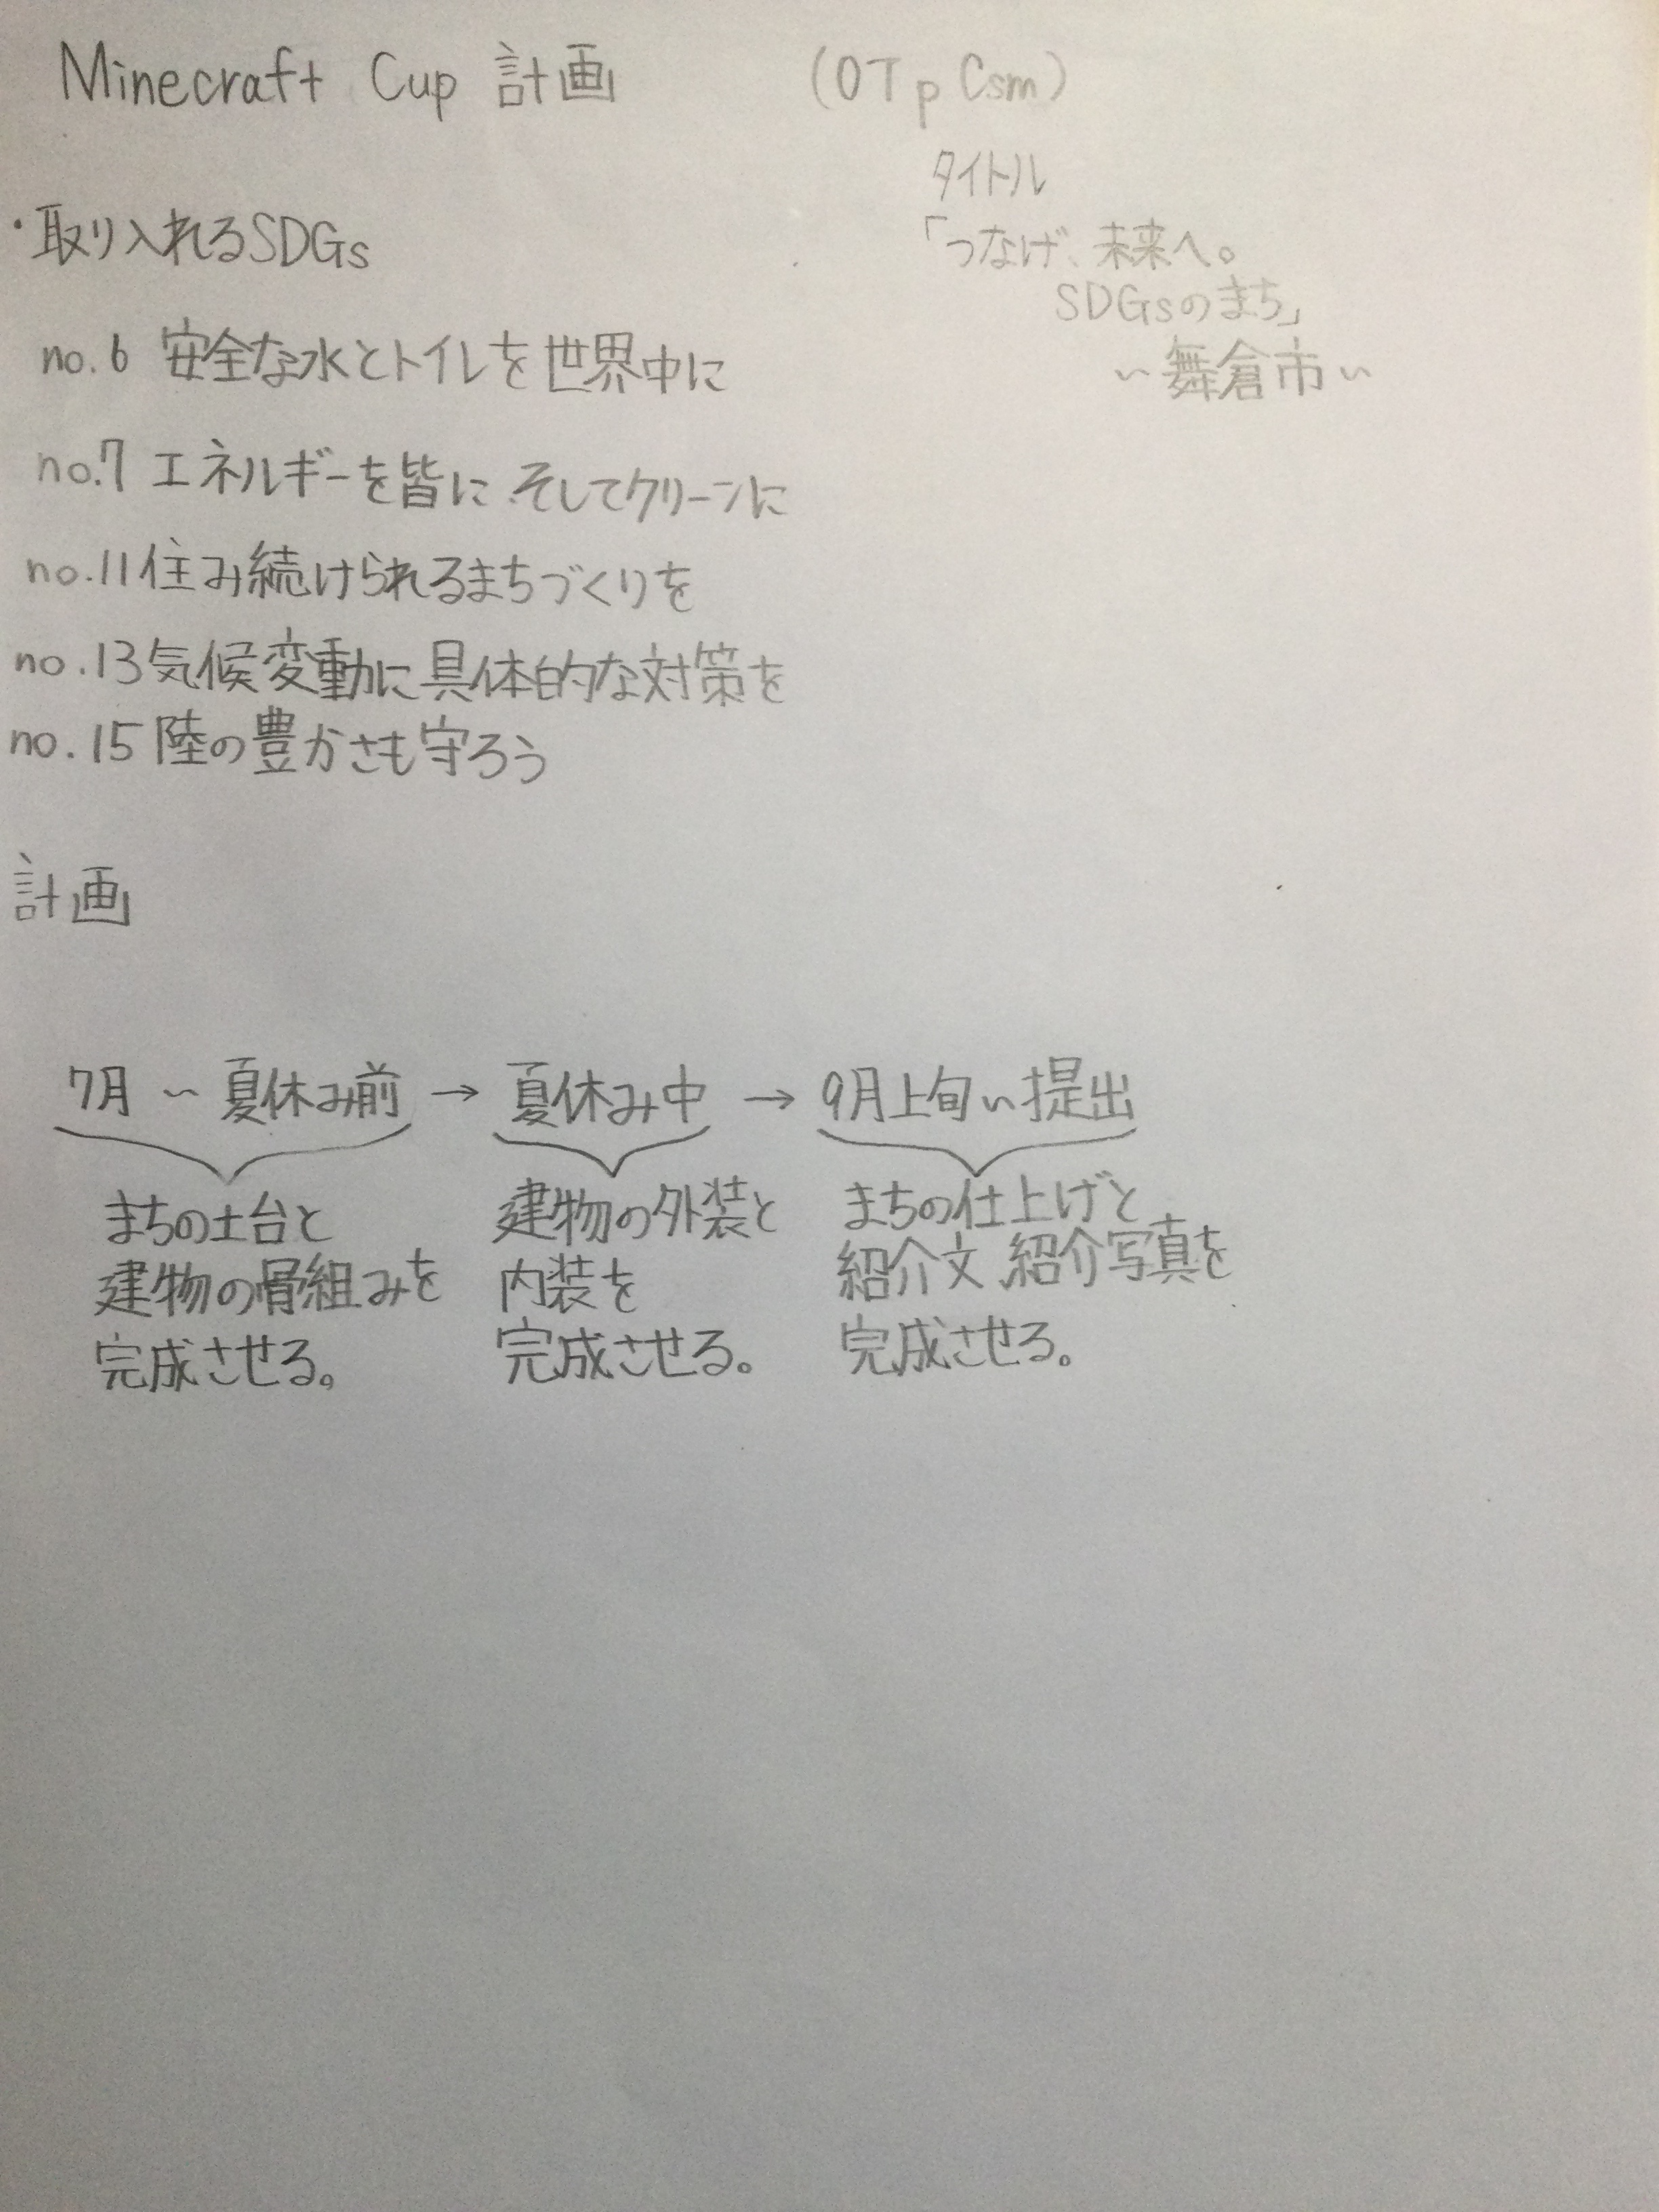 Minecraft Cup 計画 (OTp Csm)
タイトル
「つなげ、未来へ。
SDGsのまち」
~舞倉市~
・取り入れるSDGs
no.6 安全な水とトイレを世界中に
no.7 エネルギーを皆に、そしてクリーンに
no.11 住み続けられるまちづくりを
no.13 気候変動に具体的な対策を
no.15 陸の豊かさも守ろう
計画
7月 ~ 夏休み前 → 夏休み中 → 9月上旬~提出
まちの土台と
建物の骨組みを
完成させる。
建物の外装と
内装を
完成させる。
まちの仕上げと
紹介文、紹介写真を
完成させる。